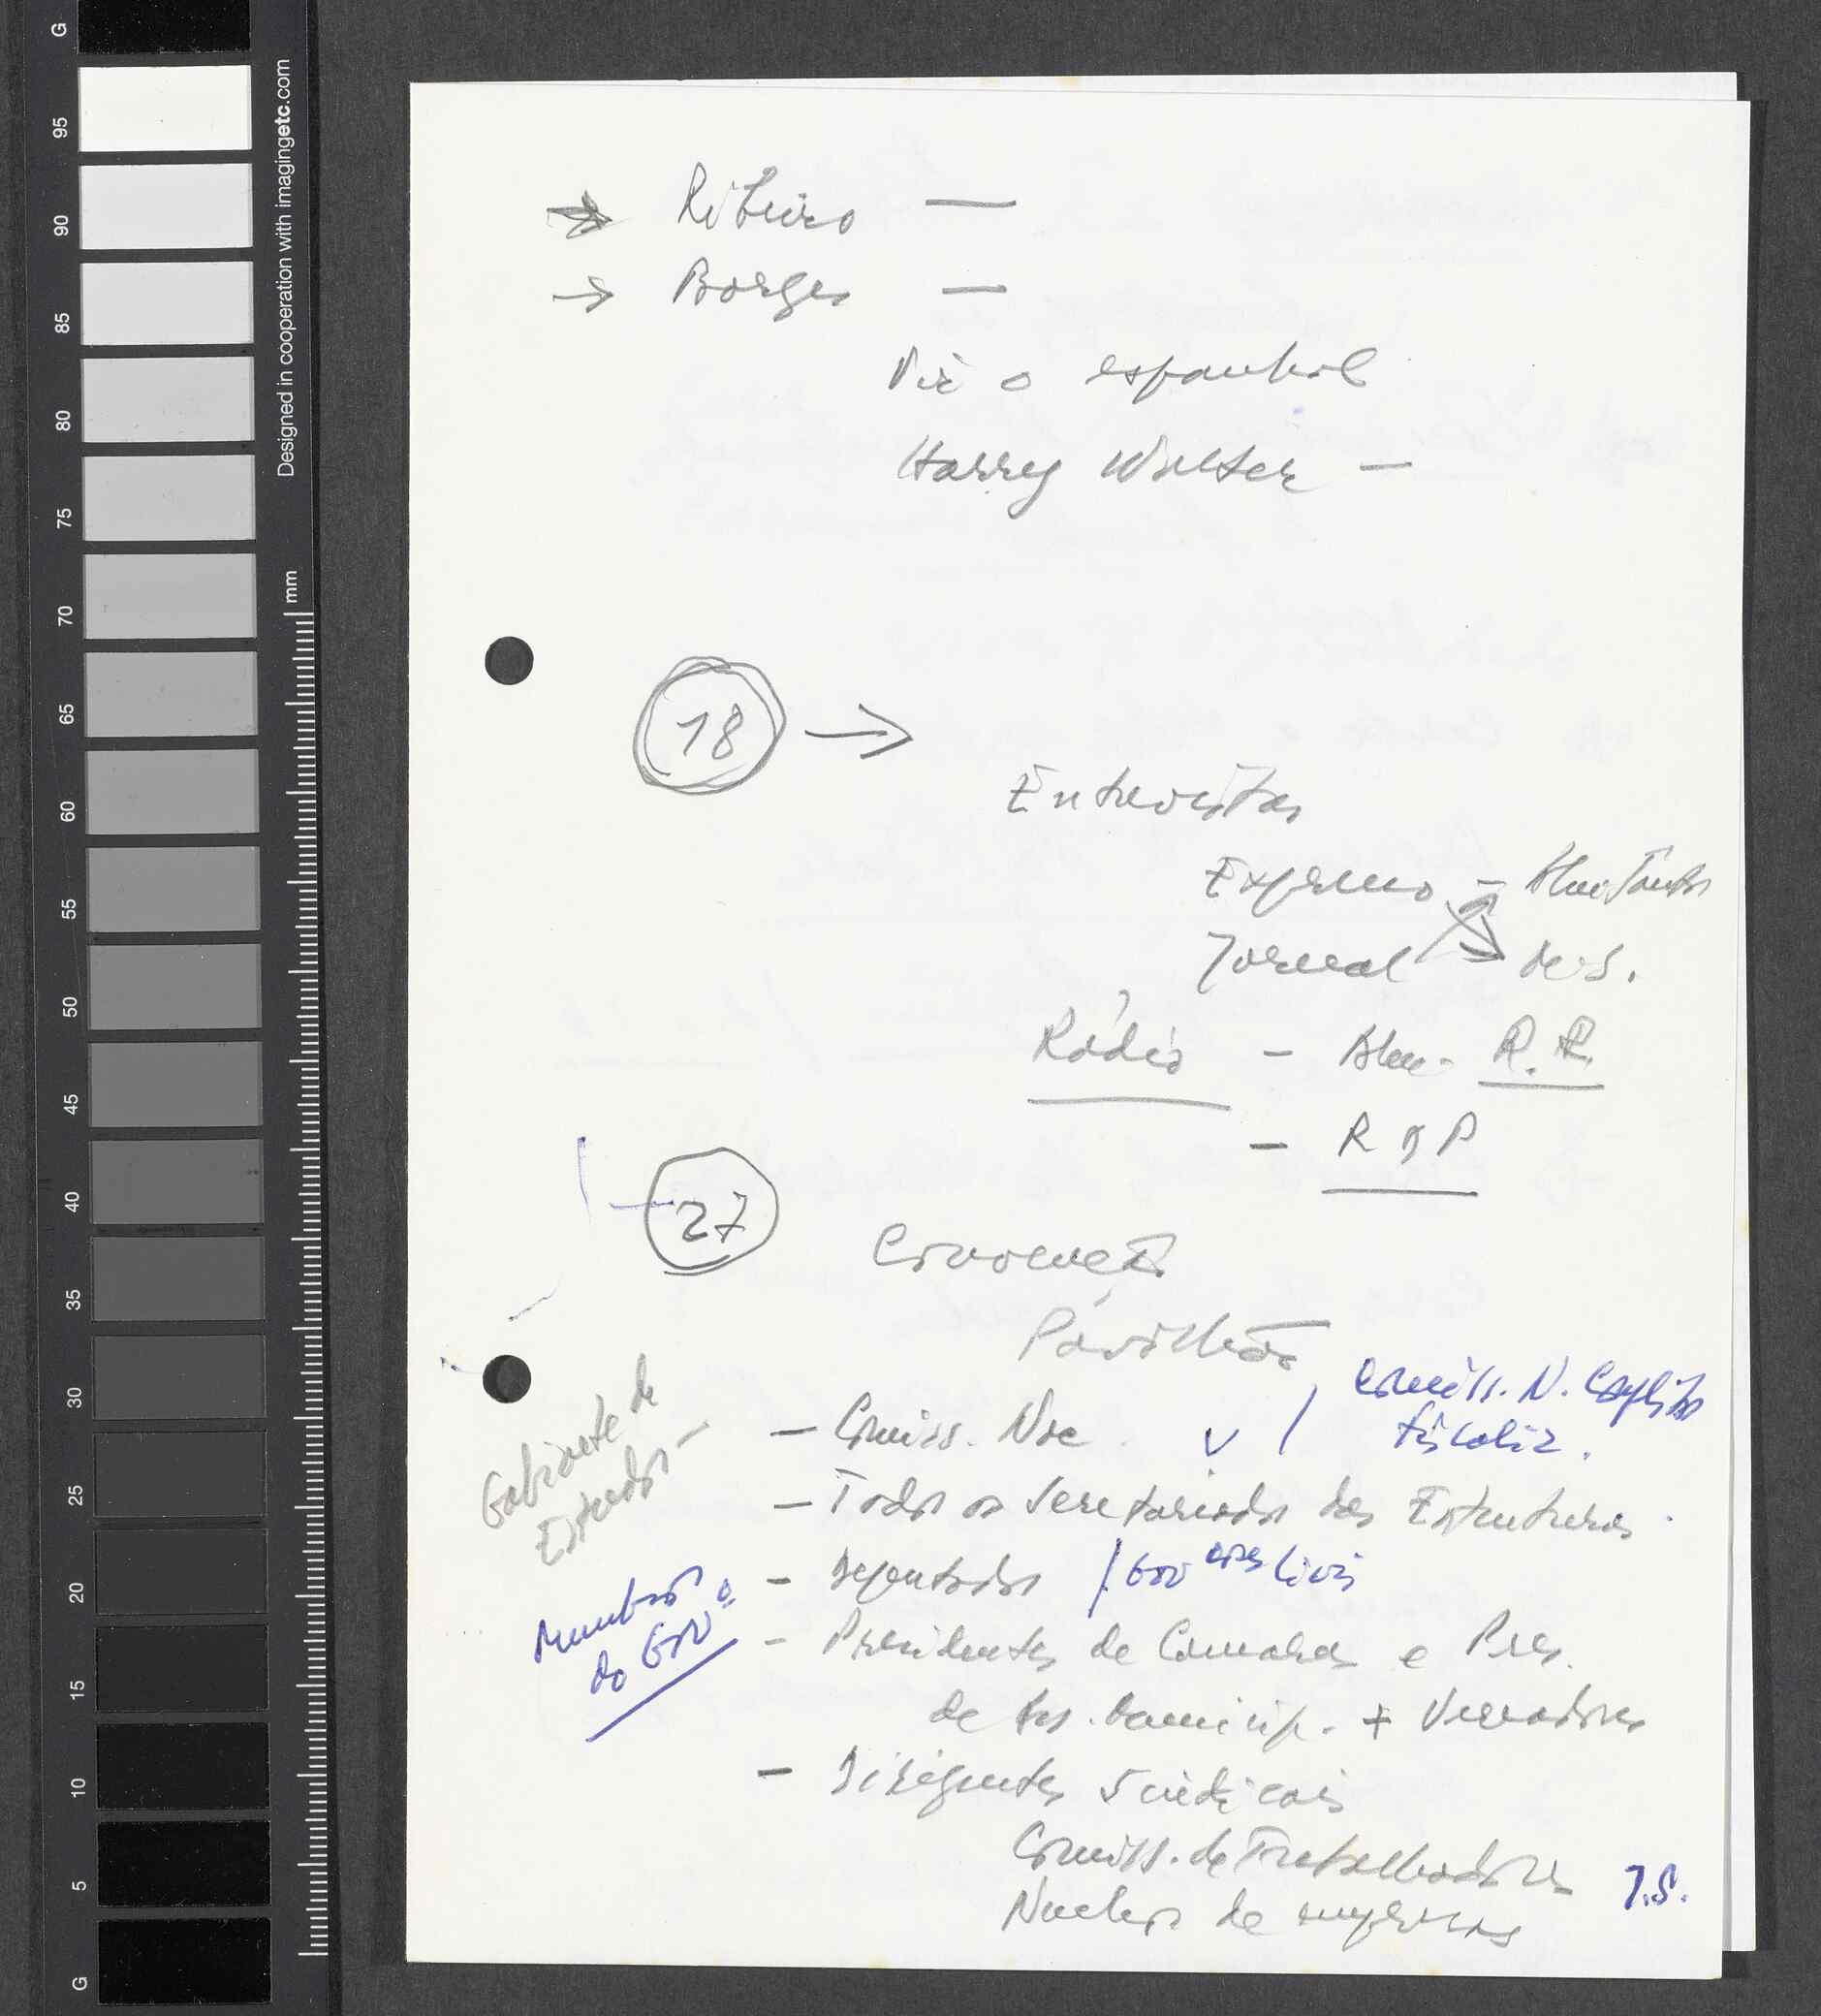 → Ribeiro —
→ Borges —
Vir o espanhol
Harry Walter —
18 →
Entrevistas
Expresso — Alm. Santos
Jornal de S.
Rádio — Alm. R.R.
— RDP
27
Convocação
Pavilhão
Comiss. N.
fiscaliz.
Gabinete de
Estudos —
— Comiss. Nac.
— Todos os Secretariados das Estruturas
— Deputados / Gov ores Civis
Membros
do Govº
— Presidentes de Camaras e Pres.
de As. Municip. + Vereadores
— Dirigentes Sindicais
Comiss. de Trabalhadores
J.S.
Nucleos de empresas
G
95
90
85
80
75
70
65
60
55
50
45
40
35
30
25
20
15
10
5
G
Designed in cooperation with imagingetc.com
mm